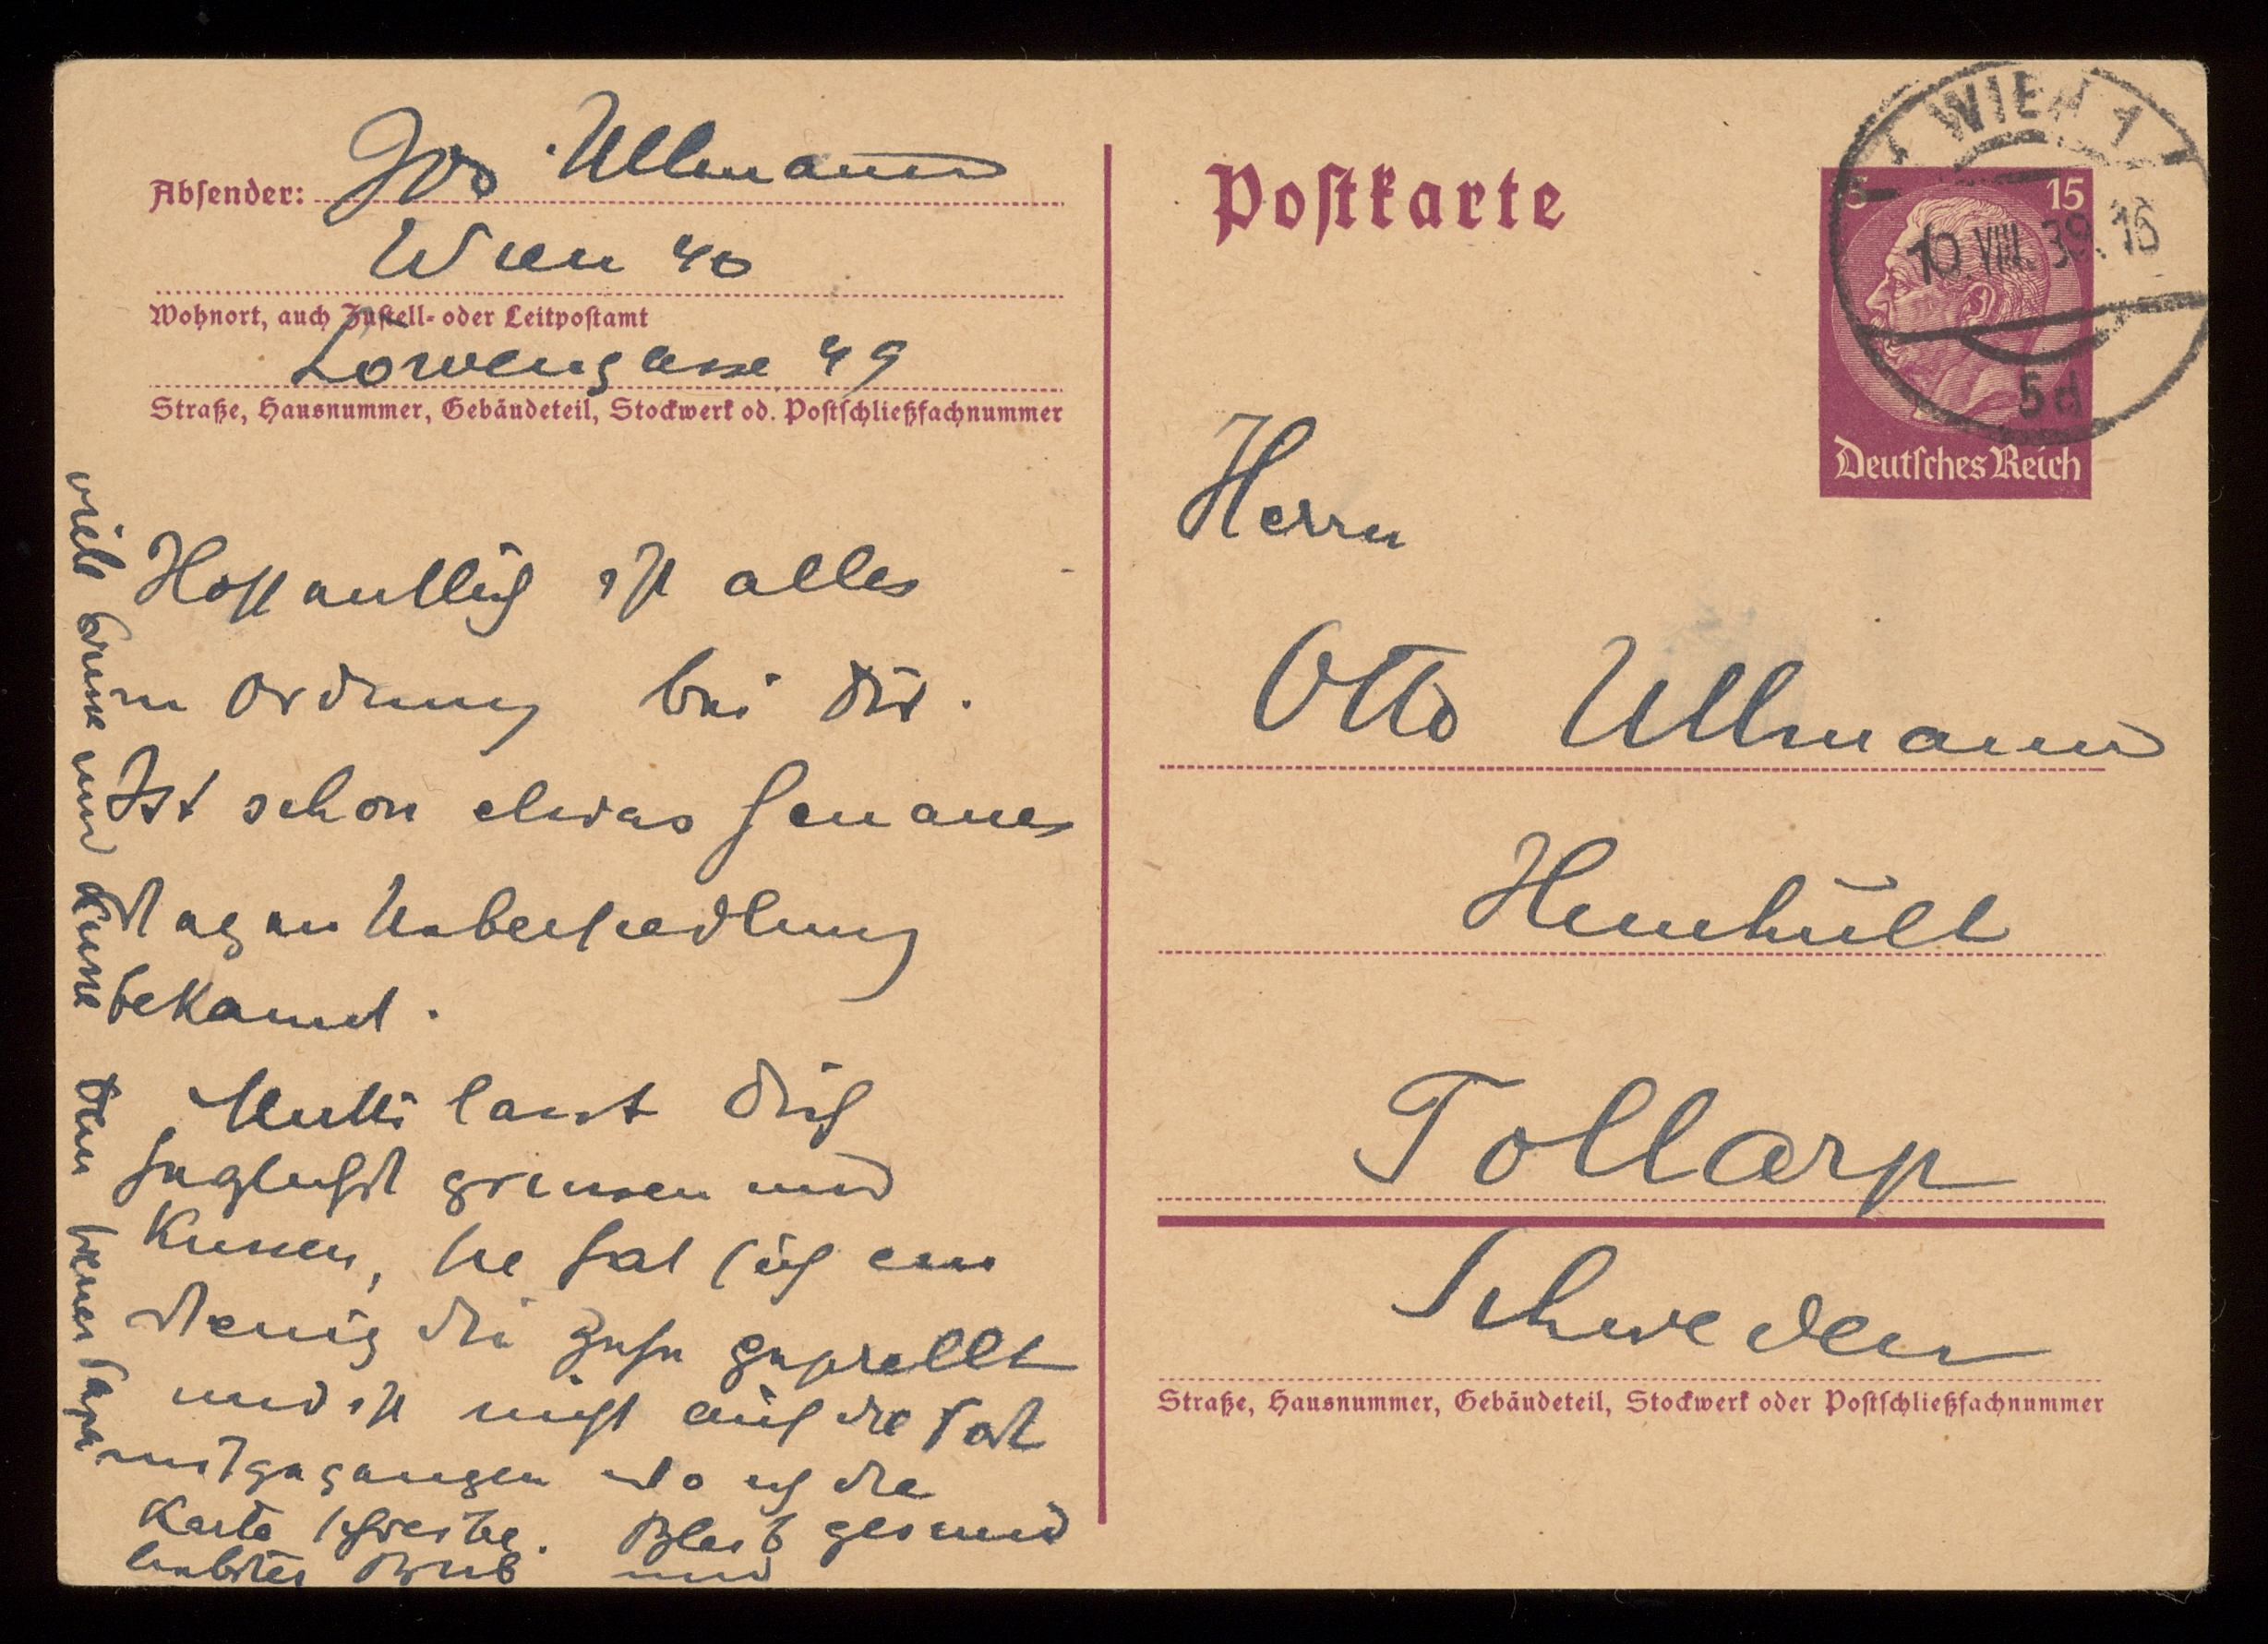 Absender: Jos Ullmann
Wien 40
Wohnort, auch Zustell- oder Leitpostamt
Löwengasse 49
Straße, Hausnummer, Gebäudeteil, Stockwerk od. Postschließfachnummer
Hoffentlich ist alles
in Ordnung bei Dir.
Ist schon etwas Genaues
wegen Uebersiedlung
bekannt.
Mutti lasst Dich
grüssen und
Küssen, sie hat sich ein
wenig die Zehe geprellt
und ist nicht auf die Post
mitgegangen wo ich die
Karte schreibe. Bleib gesund
liebster Bub und
viele Grüsse und Küsse Dein treuer Papa
Postkarte
WIEN 1
10.VIII.39.16
5d
15 15
Deutsches Reich
Herrn
Otto Ullmann
Tollarp
Schweden
Straße, Hausnummer, Gebäudeteil, Stockwerk oder Postschließfachnummer